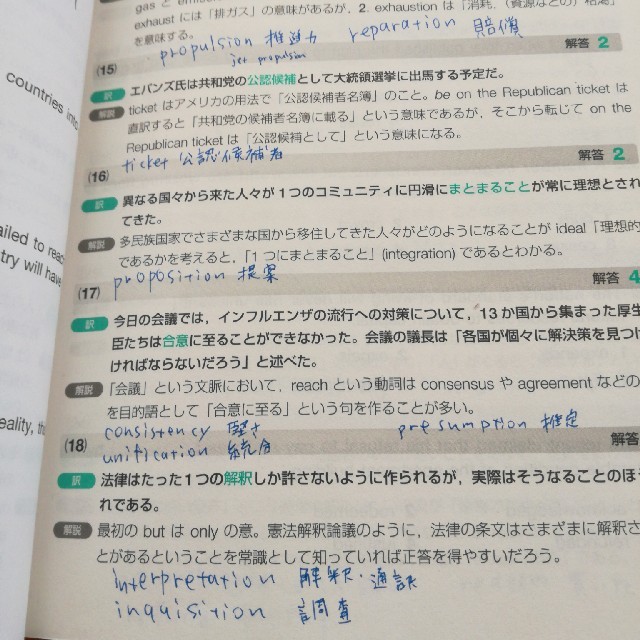 gas と
exhaust には「排ガス」の意味があるが，2. exhaustion は「消耗，（資源などの）枯渇」
を意味する。
propulsion 推進力 reparation 賠償
jet propulsion
(15) 解答 2
訳 エバンズ氏は共和党の公認候補として大統領選挙に出馬する予定だ。
解説 ticket はアメリカの用法で「公認候補者名簿」のこと。be on the Republican ticket は
直訳すると「共和党の候補者名簿に載る」という意味であるが，そこから転じて on the
Republican ticket は「公認候補として」という意味になる。
ticket 公認候補者
(16) 解答 2
訳 異なる国々から来た人々が1つのコミュニティに円滑にまとまることが常に理想とされ
てきた。
解説 多民族国家でさまざまな国から移住してきた人々がどのようになることが ideal「理想的
であるかを考えると，「1つにまとまること」(integration) であるとわかる。
proposition 提案
(17) 解答 4
訳 今日の会議では，インフルエンザの流行への対策について，13か国から集まった厚生
臣たちは合意に至ることができなかった。会議の議長は「各国が個々に解決策を見つけ
ければならないだろう」と述べた。
解説 「会議」という文脈において，reach という動詞は consensus や agreement などの
を目的語として「合意に至る」という句を作ることが多い。
consistency 堅さ presumption 推定
unification 統合
(18) 解答
訳 法律はたった1つの解釈しか許さないように作られるが，実際はそうなることのほう
れである。
解説 最初の but は only の意。憲法解釈論議のように，法律の条文はさまざまに解釈さ
とがあるということを常識として知っていれば正答を得やすいだろう。
interpretation 解釈・通訳
inquisition 調査
countries into
ailed to reach
try will have
eality, th